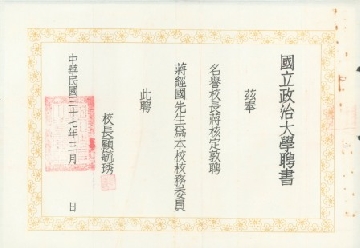 國立政治大學聘書
茲奉
名譽校長蔣核定敦聘
蔣經國先生為本校校務委員
此聘
校長顧毓琇
中華民國三十七年三月 日